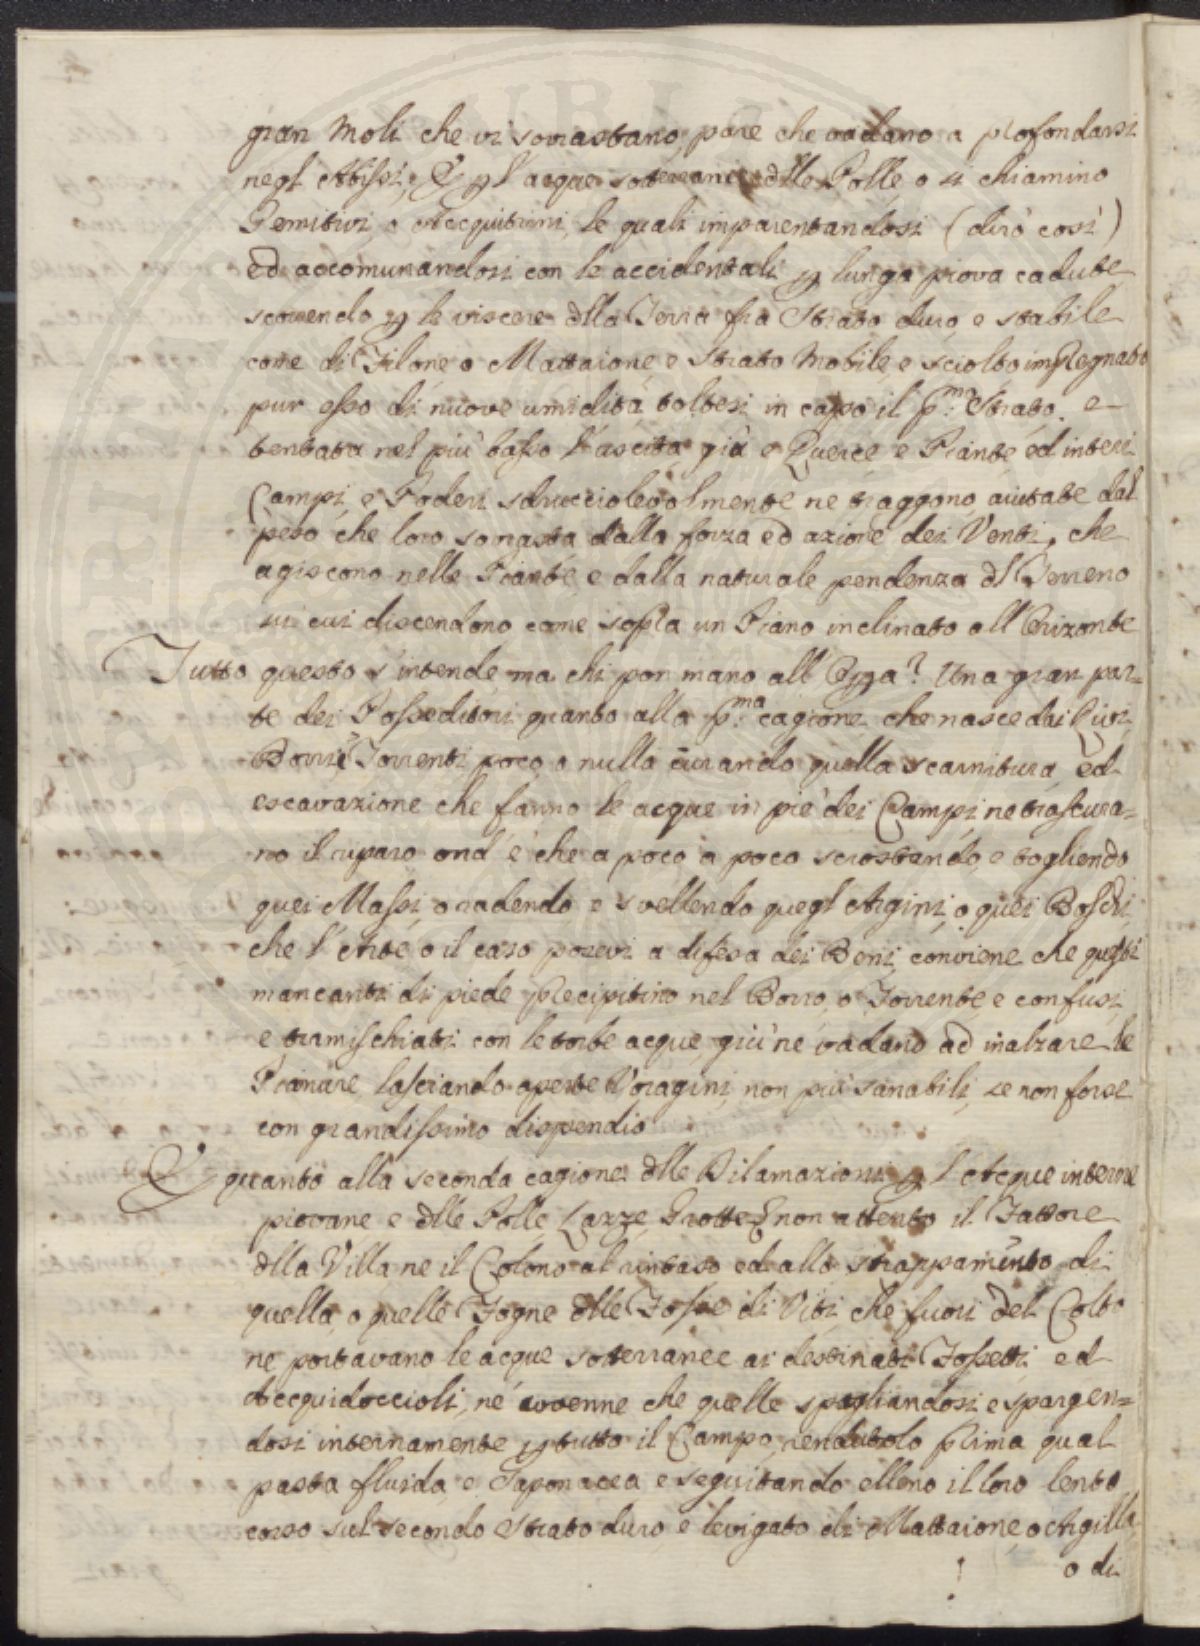 gran Moli che vi sovrastano, pare che vadano a profondarsi
negl'Abissi; E p l'acque sotterranee dlle Polle, o si chiamino
Gemitivi, o Acquitrini, le quali imparentandosi (dirò così)
ed accomunandosi con le accidentali p lunga prova cadute
scorrendo p le viscere dlla Terra fra Strato duro, e stabile
come di Filone o Mattaione e Strato Mobile, e sciolto impregnato
pur esso di nuove umidità toltesi in capo il pmo. Strato, e
tentata nel più basso l'uscita giù e Querce e Piante, ed interi
Campi, e Poderi sdrucciolevolmente ne traggono, aiutate dal
peso che loro sovrasta dalla forza ed azione dei Venti, che
agiscono nelle Piante, e dalla naturale pendenza dl Terreno
su cui discendono come sopra un Piano inclinato all'Orizonte
Tutto questo s'intende, ma chi pon mano all'Opra? Una gran par=
te dei Posseditori quanto alla pma. cagione, che nasce dai Rivi
Borri e Torrenti poco, o nulla curando quella scarnitura ed
escavazione che fanno le acque in piè dei Campi ne trascura=
no il riparo ond'è che a poco a poco scrostando, e togliendo
quei Massi o radendo e svellendo quegl'Argini, o quei Boschi
che l'Arte, o il caso posevi a difesa dei Beni, conviene che questi
mancanti di piede precipitino nel Borro, o Torrente e confusi,
e tramischiati con le torbe acque giù ne vadano ad inalzare le
Pianure lasciando aperte Voragini, non più sanabili, se non forse
con grandissimo dispendio
E quanto alla seconda cagione dlle Dilamazioni p l'Acque interne
piovane e dlle Polle, Lazze, Grotte & non attento il Fattore
dlla Villa ne il Colono al rintaso ed allo strappamento di
quella, o quelle Fogne dlle Fosse di Viti, che fuori del Colto
ne portavano le acque sotterranee ai destinati Fossetti ed
Acquidoccioli, ne avvenne che quelle spagliandosi e spargen=
dosi internamente p tutto il Campo, rendutolo prima qual
pasta fluida, e Saponacea e seguitando elleno il loro lento
corso sul secondo Strato duro, e levigato di Mattaione, o Argilla,
o di